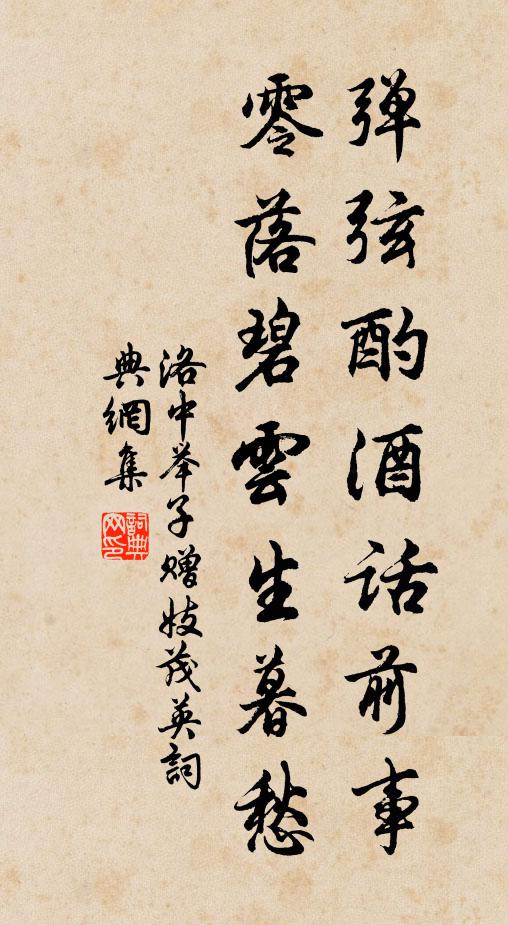 弹弦酌酒话前事
零落碧雲生暮愁
洛中举子赠妓茂英詞
典網集
詞典网印